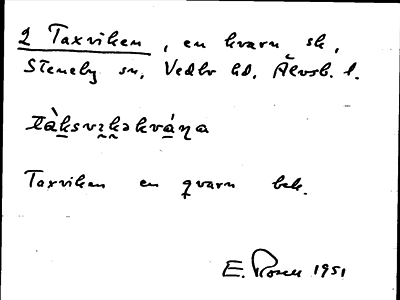 2 Taxviken, en kvarn sk,
Steneby sn, Vedbo hd, Älvsb. l.
tàksvi̬k̬əkváṇa
Taxviken en qvarn bek.
E. Rosen 1951